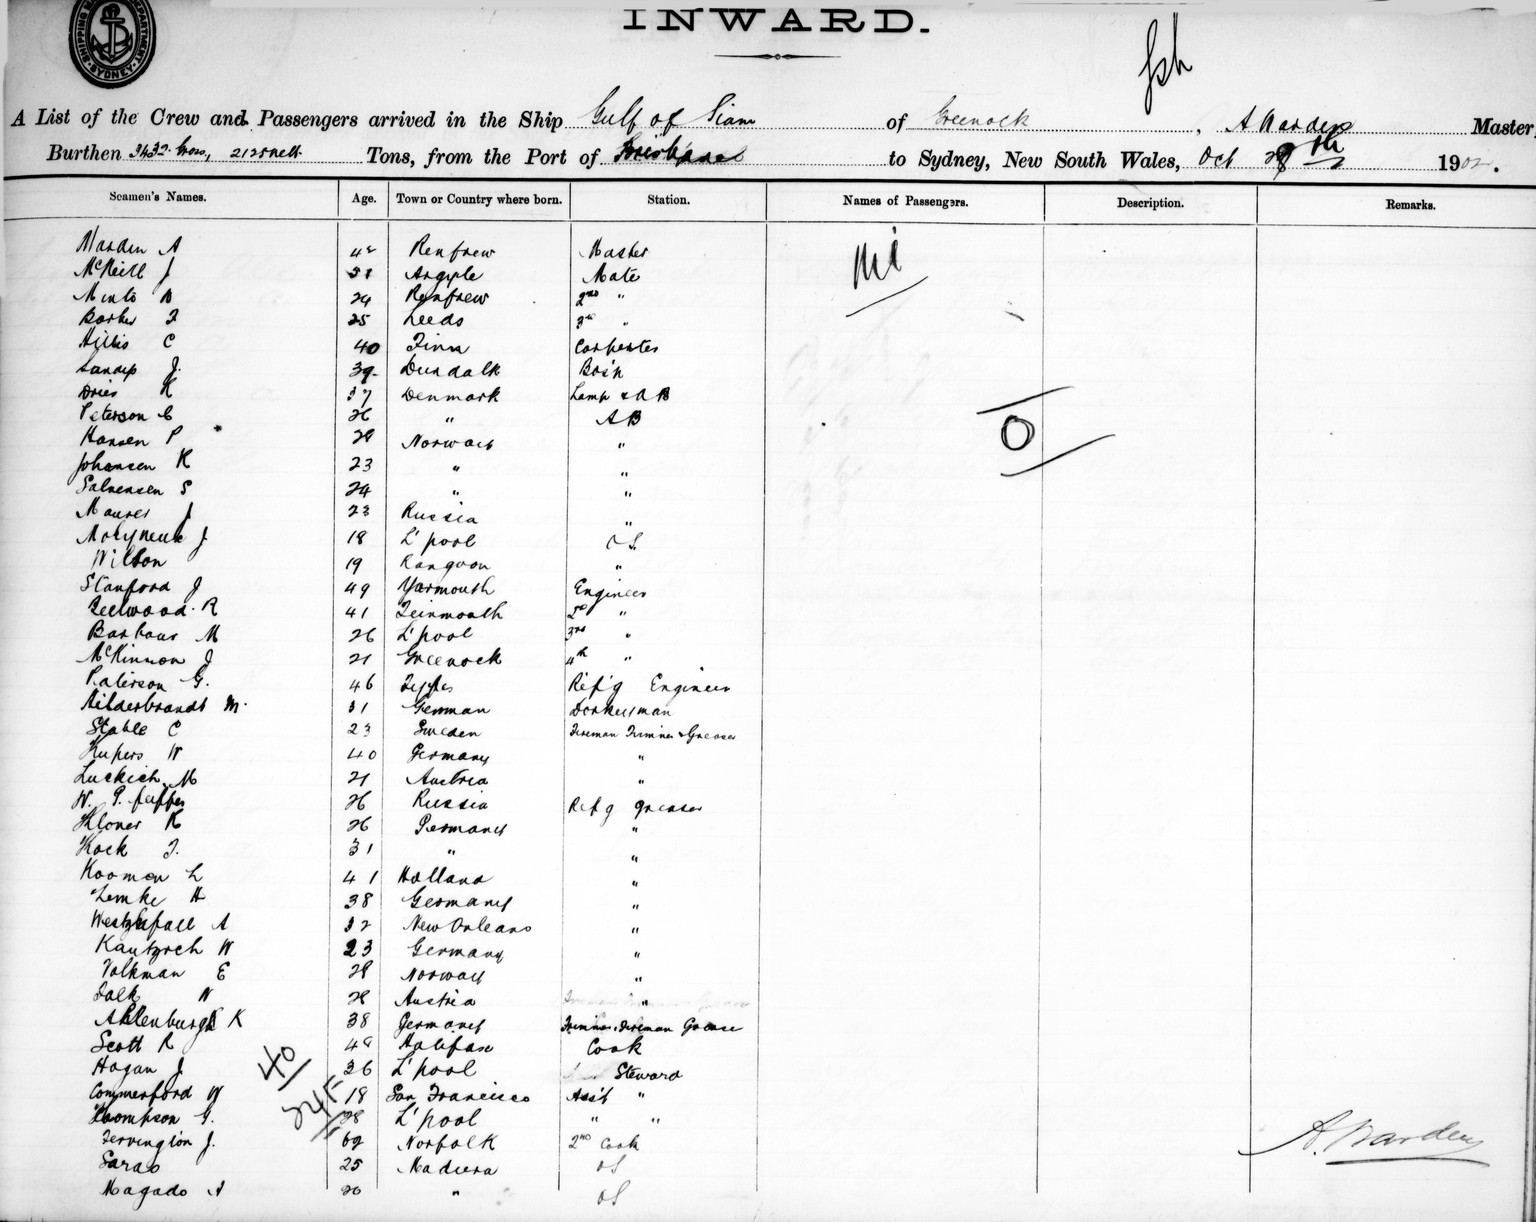 INWARD.
A List of the Crew and Passengers arrived in the Ship Gulf of Siam of Greenock, A Warden Master
Burthen 3432 Gross, 2125 nett Tons, from the Port of Brisbane to Sydney, New South Wales, Oct 28th 1902.
Seamen's Names. Age. Town or Country where born. Station. Names of Passengers. Description. Remarks.
Warden A 42 Renfrew Master
McNeill J 31 Argyle Mate nil
Minto D 24 Renfrew 2nd "
Barker F 25 Leeds 3rd "
C 40 Finn Carpenter
J. 39 Dundalk Bos'n
Dries K 37 Denmark Lamp & AB
Peterson C 26 " AB O
Hansen P 28 Norway "
Johansen K 23 " "
Salvensen S 24 " "
Maurer J 23 Russia "
Molyneux J 18 L'pool OS
Wilson 19 Rangoon "
Stanford J 49 Yarmouth Engineer
Bellwood R 41 Teinmouth 2d "
Barbour M 26 L'pool 3rd "
McKinnon J 21 Greenock 4th "
Paterson G. 46 Refg Engineer
Hilderbrandt M. 31 German Donkeyman
Stable C 23 Sweden Fireman Trimmer & Greaser
Kupers W 40 Germany "
Luckich M 21 Austria "
W. Pfeiffer 26 Russia Refg greaser
Kloner K 26 Germany "
Kock F. 31 " "
Kooman L 41 Holland "
Lemke H 38 Germany "
Westphall A 32 New Orleans "
Kautzsch W 23 Germany "
Volkman E 28 Norway "
Falk W 28 Austria "
Ahlenburgh K 38 Germany Trimmer, Fireman Grease
Scott R 48 Halifax Cook
40
Hogan J 36 L'pool Steward
Commerford W 18 San Francisco Asst "
Thompson G. 28 L'pool " "
Tervington J. 62 Norfolk 2nd Cook
A. Warden
Saras 25 Madiera OS
Magado A 20 " OS